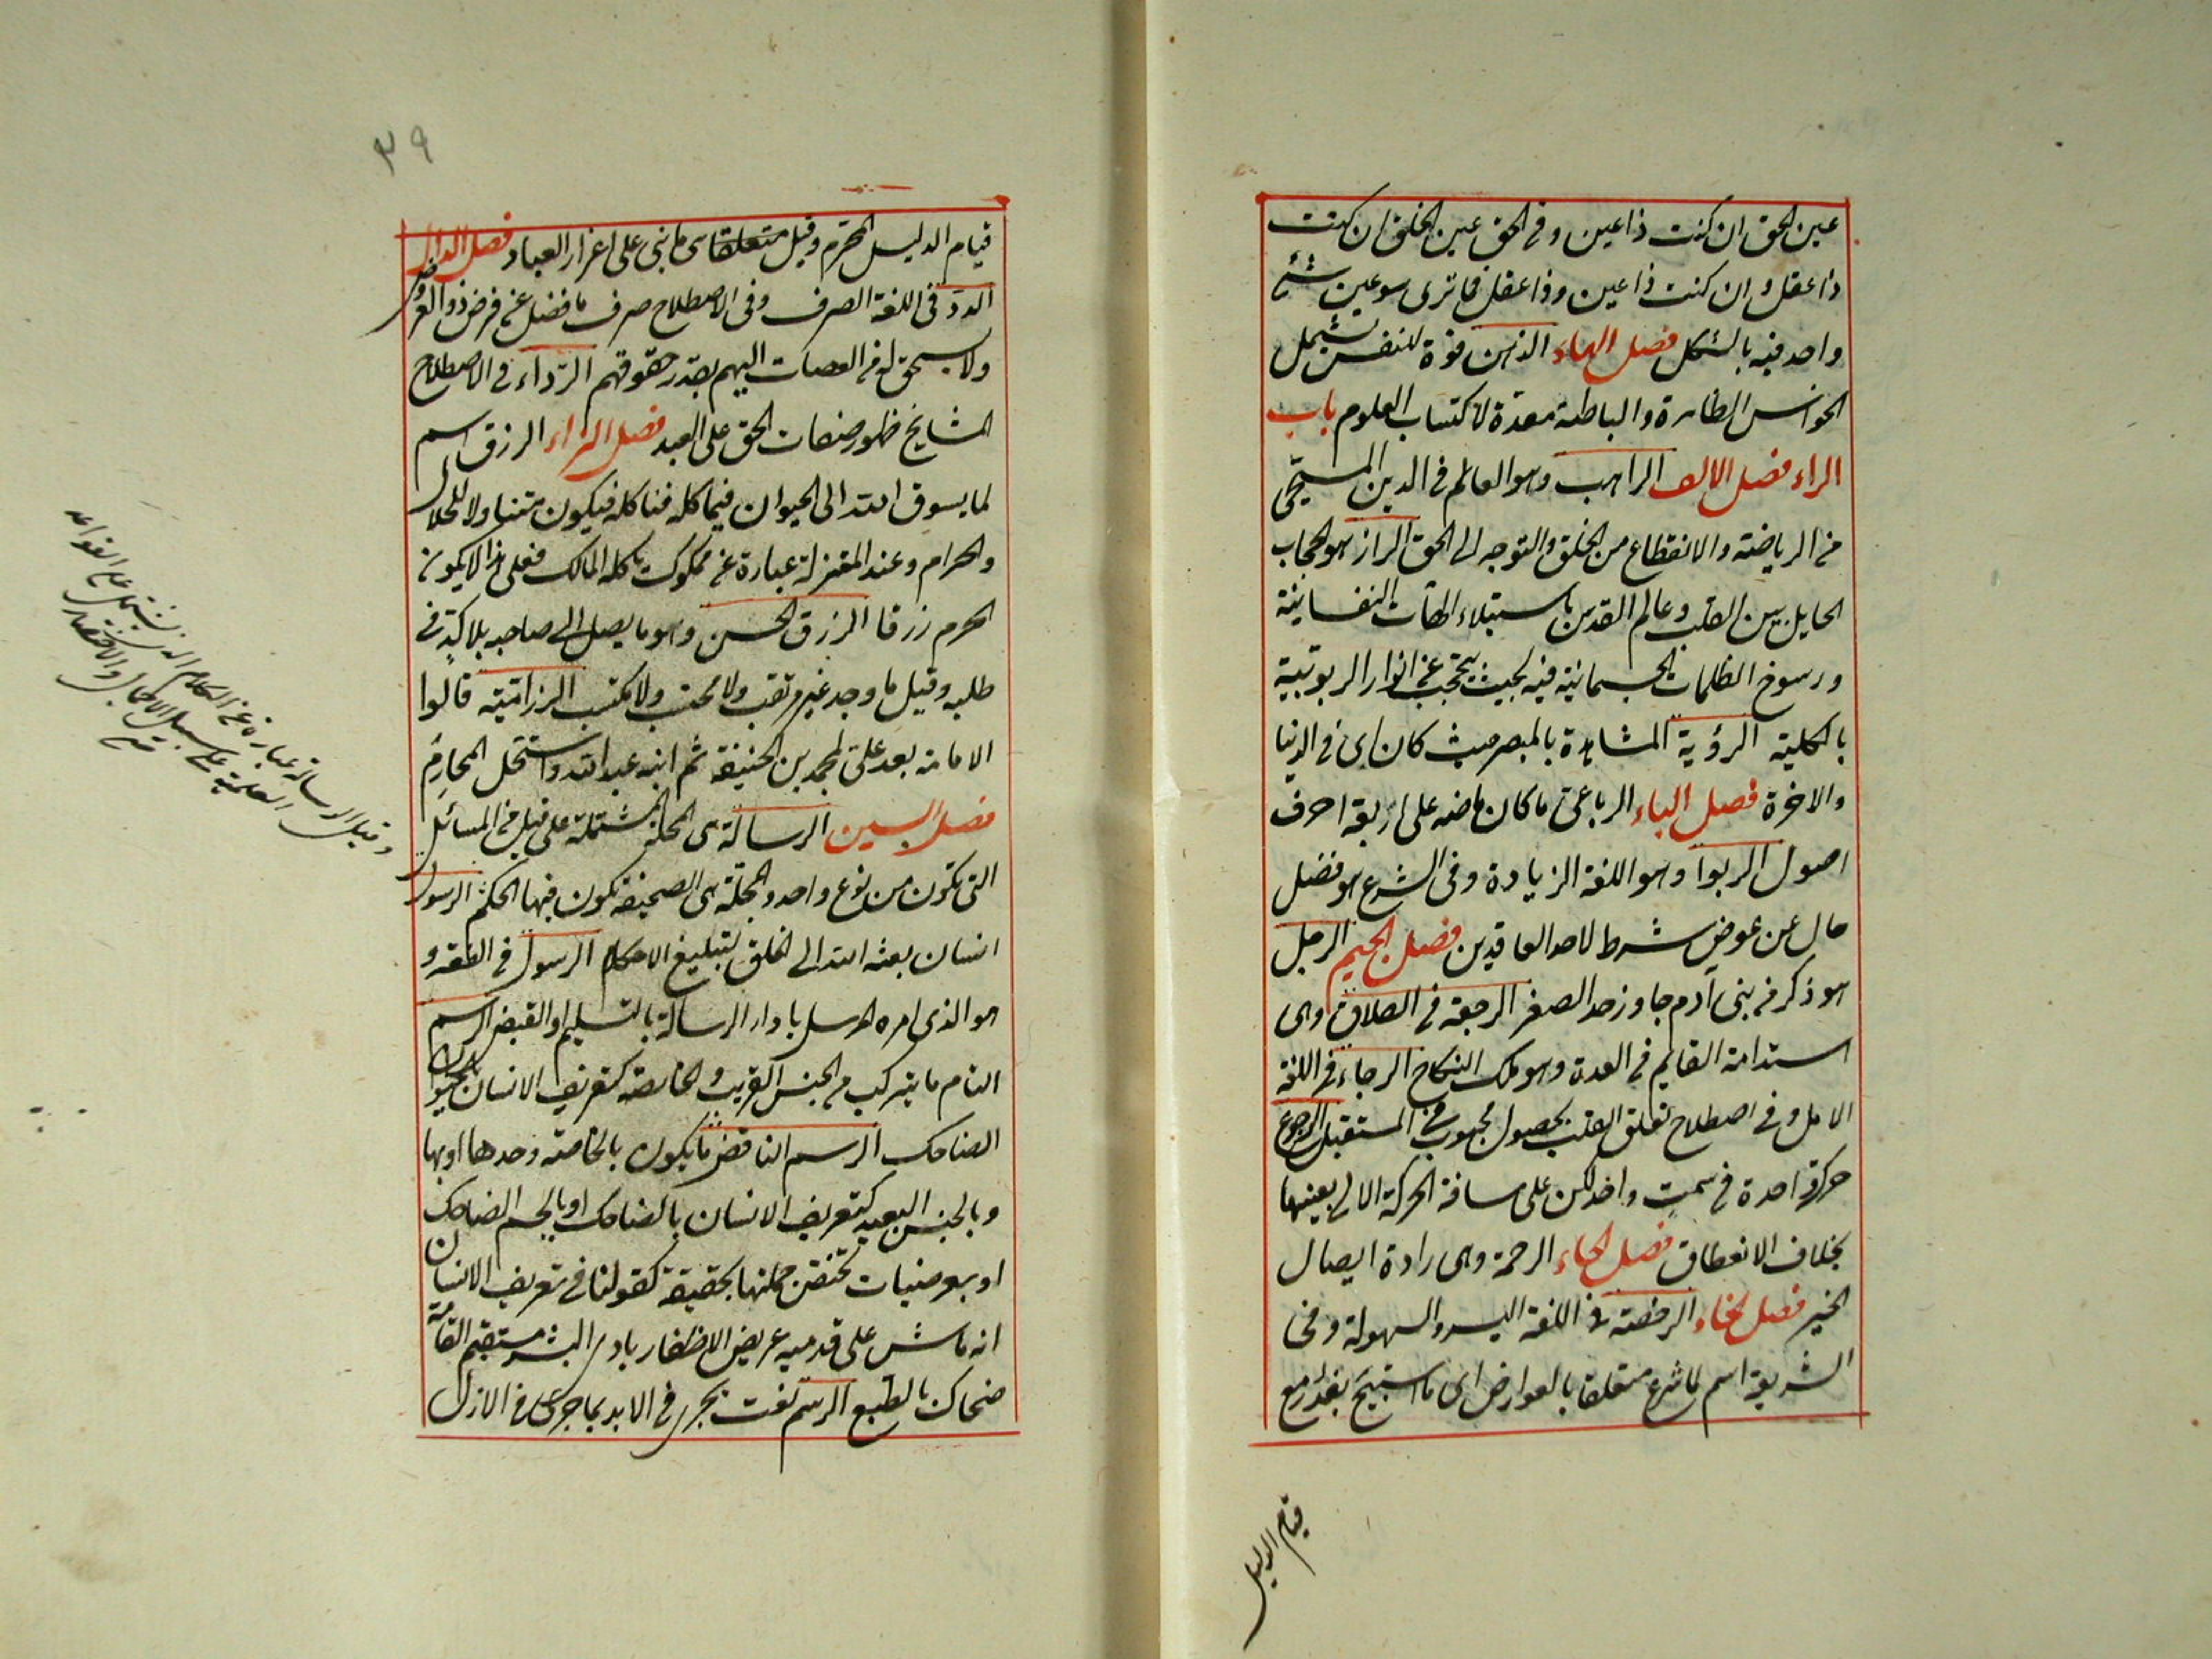 عين الحق ان كنت ذا عين وفى الحق عين الخلق ان كنت
ذا عقل وان كنت ذا عين وذا عقل فما ترى سوى عين شئ
واحد فيه بالشكل فصل الهاء الذهن قوة للنفس تشمل
الحواس الظاهرة والباطنة معدة لاكتساب العلوم باب
الراء فصل الالف الراهب وهو العالم فى الدين المسيحى
من الرياضة والانقطاع من الخلق والتوجه الى الحق الران هو الحجاب
الحايل بين القلب وعالم القدس باستيلاء الهيئات النفسانية
ورسوخ الظلمات الجسمانية فيه بحيث يحتجب عن انوار الربوبية
بالكلية الرؤية المشاهدة بالبصر حيث كان اى فى الدنيا
والاخرة فصل الباء الرباعى ما كان ماضيه على اربعة احرف
اصول الربوا وهو اللغة الزيادة وفى الشرع هو فضل
خال عن عوض شرط لاحد العاقدين فصل الجيم الرجل
هو ذكر من بنى آدم جاوز حد الصغر الرجعة فى الطلاق وهى
استدامة القايم فى العدة وهو ملك النكاح الرجاء فى اللغة
الامل وفى اصطلاح تعلق القلب بحصول محبوب فى المستقبل الرجوع
حركة واحدة فى سمت واحد لكن على مسافة الحركة الاولى بعينها
بخلاف الانعطاف فصل الحاء الرحمة وهى ارادة ايصال
الخير فصل الخاء الرخصة فى اللغة اليسر والسهولة وفى
الشريعة اسم لما شرع متعلقا بالعوارض اى ما استبيح بعذر مع
قيام الدليل
٣٩
قيام الدليل المحرم وقيل متعلقا هى ما بنى على اعذار العباد فصل الدال
الرد فى اللغة الصرف وفى الاصطلاح صرف ما فضل عن فرض ذوى الفروض
ولا مستحق له من العصبات اليهم بقدر حقوقهم الرداء فى الاصطلاح
المشايخ ظهور صفات الحق على العبد فصل الزاء الرزق اسم
لما يسوق الله الى الحيوان فيأكله فيكون متناولا للحلال
والحرام وعند المعتزلة عبارة عن مملوك يأكله المالك فعلى هذا لا يكون
الحرام رزقا الرزق الحسن وهو ما يصل الى صاحبه بلا كد فى
طلبه وقيل ما وجد غير مرتقب ولا محتسب ولا مكتسب الرزامية قالوا
الامامة بعد على لمحمد بن الحنيفة ثم ابنه عبد الله واستحل المحارم
فصل السين الرسالة هى المجلة المشتملة على قليل من المسائل
التى تكون من نوع واحد والمجلة هى الصحيفة تكون فيها الحكم الرسول
انسان بعثه الله الى الخلق لتبليغ الاحكام الرسول فى الفقه و
هو الذى امره المرسل باداء الرسالة بالتسليم او القبض الرسم
التام ما يتركب من الجنس القريب والخاصة كتعريف الانسان بالحيوان
الضاحك الرسم الناقص ما يكون بالخاصة وحدها او بها
وبالجنس البعيد كتعريف الانسان بالضاحك او بالجسم الضاحك
او بعرضيات تختص جملتها بحقيقة كقولنا فى تعريف الانسان
انه ماش على قدميه عريض الاظفار بادى البشر مستقيم القامة
ضحاك بالطبع الرسم نعت يجرى فى الابد بما جرى فى الازل
وقيل الرسالة عبارة عن الكلام الذى يشتمل على القواعد
العلمية على سبيل الاجمال والاختصار